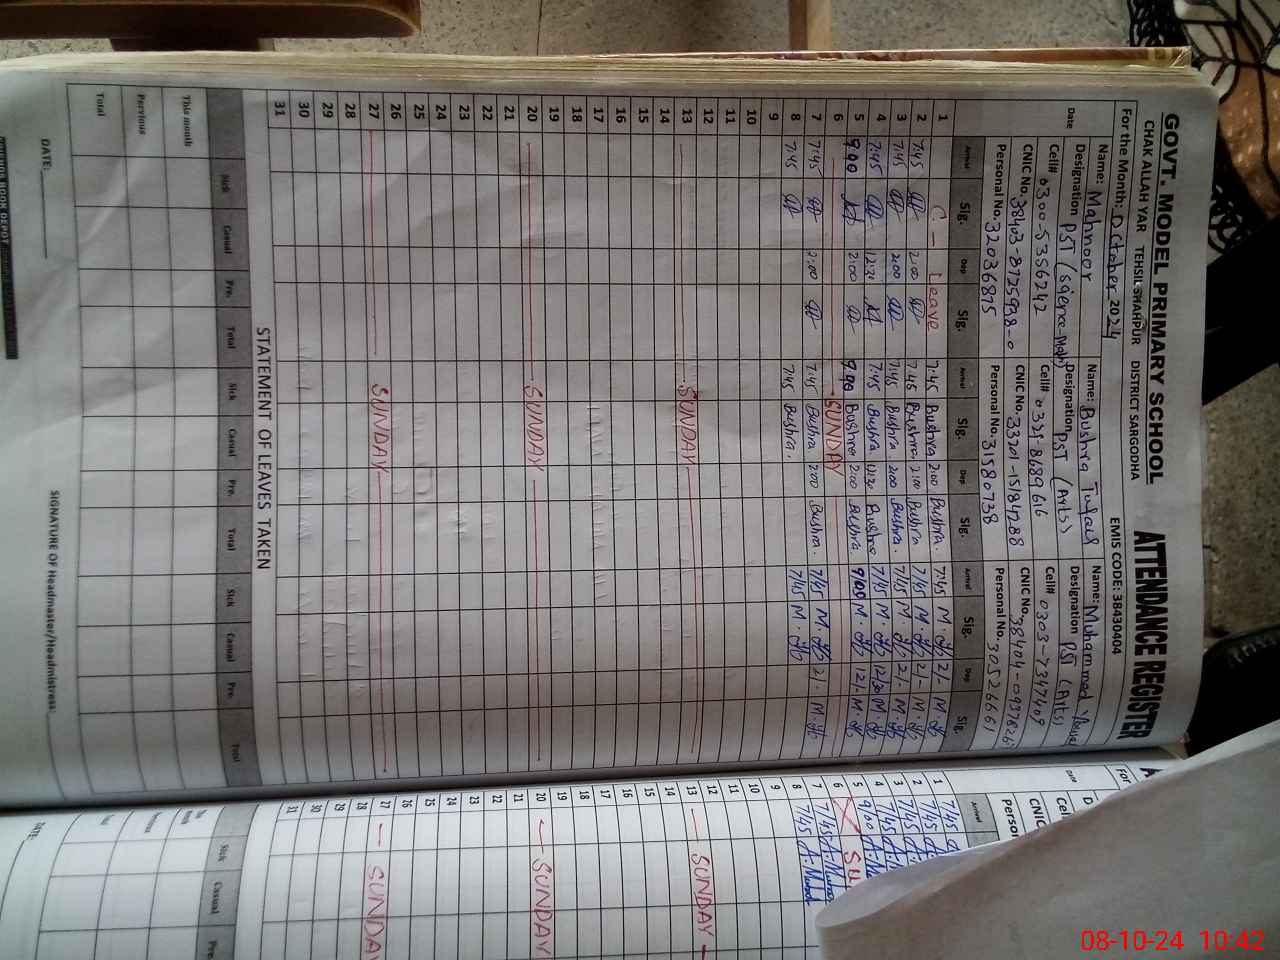 GOVT. MODEL PRIMARY SCHOOL ATTENDANCE REGISTER
CHAK ALLAH YAR TEHSIL SHAHPUR DISTRICT SARGODHA
For the Month: October 2024 EMIS CODE: 38430404
Name: Mahnoor Name: Bushra Tufail Name: Muhammad
Designation PST (Science-Math) Designation PST (Arts) Designation PST (Arts)
Cell# 0300-5356242 Cell# 0321-8689616 Cell# 0303-7347409
CNIC No. 38403-8725938-0 CNIC No. 33201-1518428-8 CNIC No. 38404-0937826-
Personal No. 32036875 Personal No. 31580738 Personal No. 30526661
Date Arrival Sig. Dep Sig. Arrival Sig. Dep Sig. Arrival Sig. Dep Sig.
1 C – Leave 7:45 Bushra. 2:00 Bushra. 7:45 M. 2/- M.
2 7:45 2:00 7:45 Bushra. 2:00 Bushra 7/45 M. 2/- M.
3 7:45 2:00 7:45 Bushra 2:00 Bushra. 7/45 M. 2/- M.
4 7:45 12:30 7:45 Bushra 12:30 Bushra 7/45 M. 12/30 M.
5 9:00 2:00 9:00 Bushra 2:00 Bushra. 9/00 M. 2/- M.
6 SUNDAY
7 7:45 2:00 7:45 Bushra 2:00 Bushra. 7/45 M. 2/- M.
8 7:45 7:45 Bushra. 7/45 M.
9
10
11
12
13 SUNDAY
14
15
16
17
18
19
20 SUNDAY
21
22
23
24
25
26
27 SUNDAY
28
29
30
31
STATEMENT OF LEAVES TAKEN
Sick Casual Pre. Total Sick Casual Pre. Total Sick Casual Pre. Total
This month
Pervious
Total
DATE: SIGNATURE OF Headmaster/Headmistress:
BOOK DEPOT
For
Cell
CNIC
Person
Date Arrival
1 7/45
2 7/45
3 7/45
4 7/45
5 9/00
6 SU
7 7/45
8 7/45
9
10
11
12
13 SUNDAY
14
15
16
17
18
19
20 SUNDAY
21
22
23
24
25
26
27 SUNDAY
28
29
30
31
Sick Casual Pre.
DATE:
08-10-24 10:42